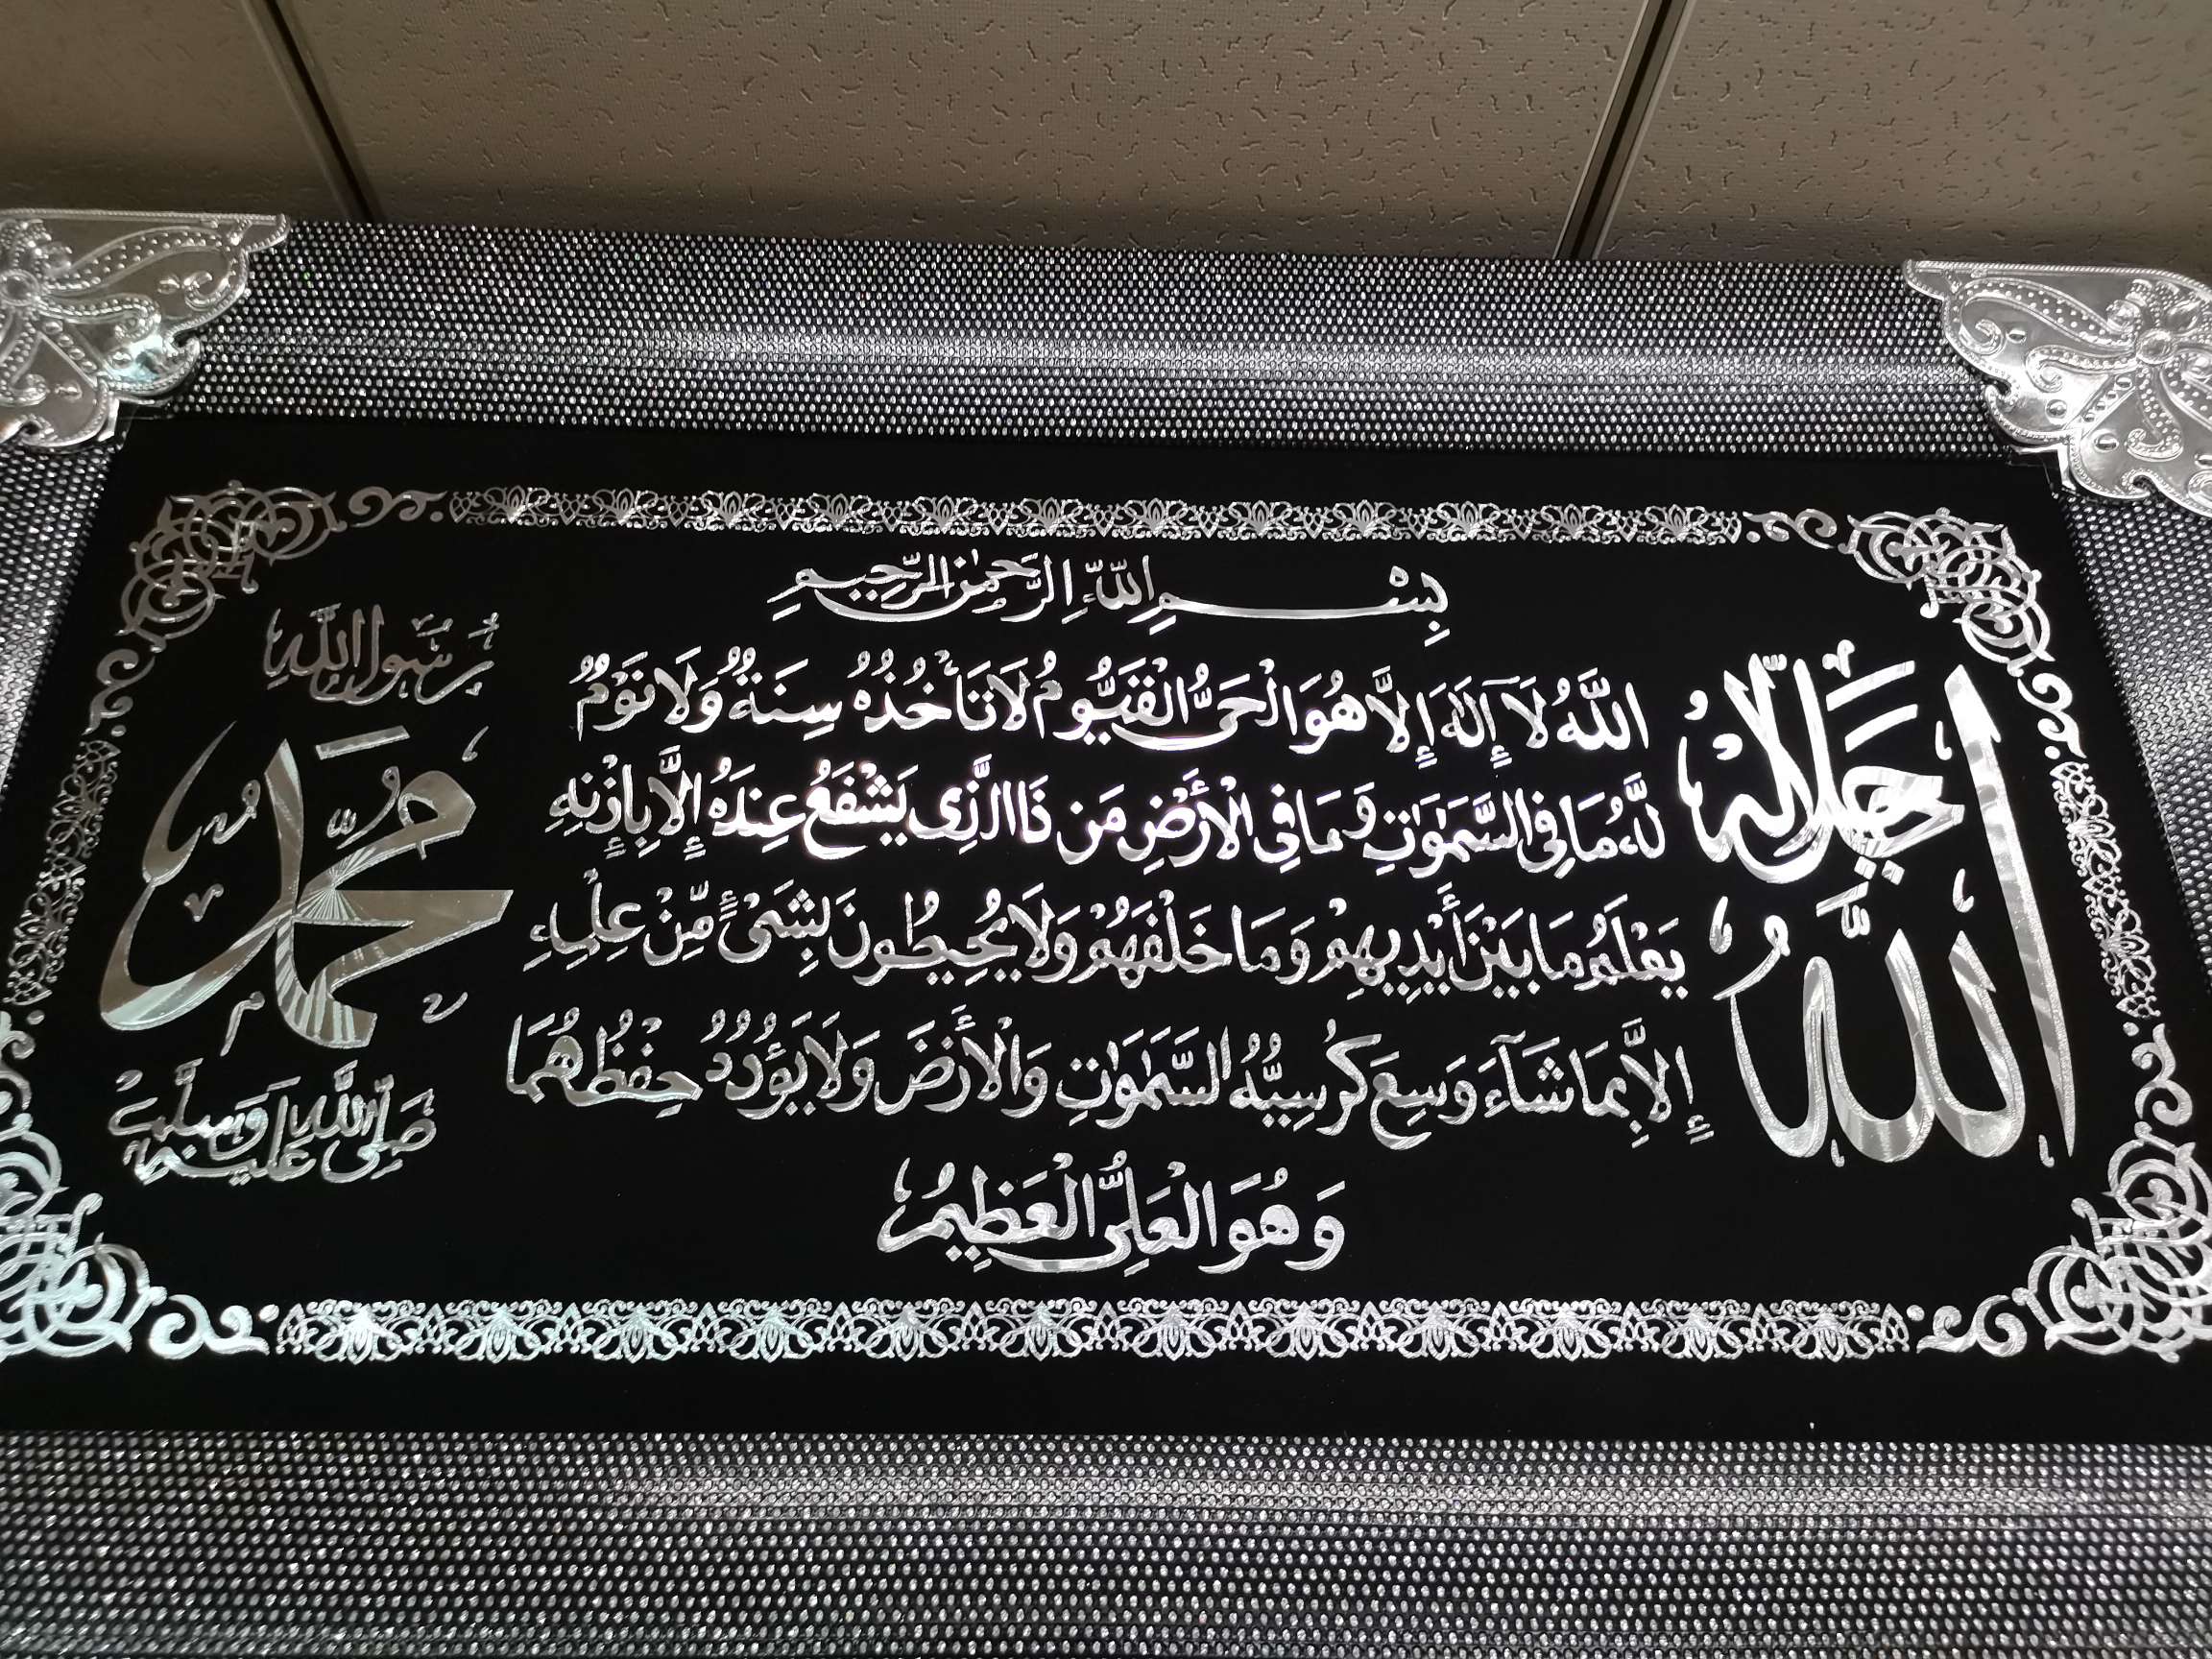 بِسْمِ اللّٰهِ الرَّحْمٰنِ الرَّحِيمِ
اللَّهُ لَآ إِلَٰهَ إِلَّا هُوَ الْحَيُّ الْقَيُّومُ لَا تَأْخُذُهُ سِنَةٌ وَلَا نَوْمٌ
لَّهُ مَا فِي السَّمَوَاتِ وَمَا فِي الْأَرْضِ مَن ذَا الَّذِي يَشْفَعُ عِندَهُ إِلَّا بِإِذْنِهِ
يَعْلَمُ مَا بَيْنَ أَيْدِيهِمْ وَمَا خَلْفَهُمْ وَلَا يُحِيطُونَ بِشَيْءٍ مِّنْ عِلْمِهِ
إِلَّا بِمَا شَآءَ وَسِعَ كُرْسِيُّهُ السَّمَوَاتِ وَالْأَرْضَ وَلَا يَؤُدُهُ حِفْظُهُمَا
وَهُوَ الْعَلِيُّ الْعَظِيمُ
جَلَّ جَلَالُهُ
اللّٰهُ
رَسُولُ اللّٰهِ
مُحَمَّد
صَلَّى اللّٰهُ عَلَيْهِ وَسَلَّمَ